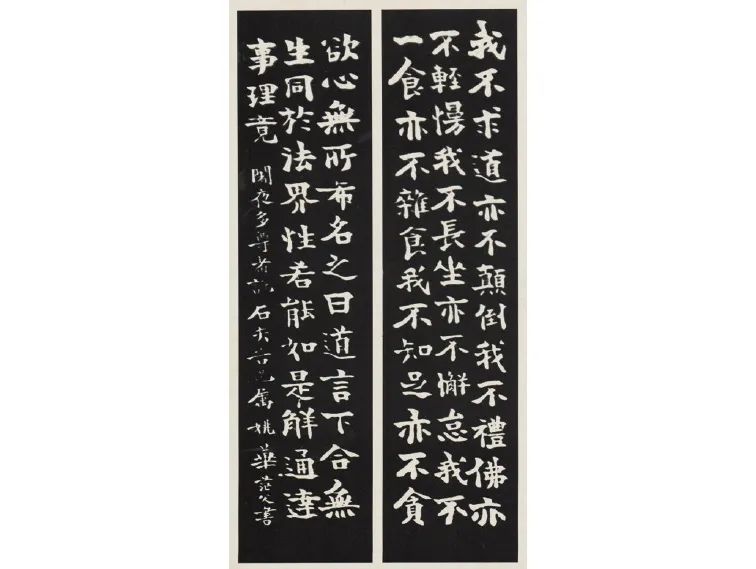 我不求道亦不顛倒我不禮佛亦
不輕慢我不長坐亦不懈怠我不
一食亦不雜食我不知足亦不貪
欲心無所希名之曰道言下合無
生同於法界性若能如是解通達
事理竟 闍夜多尊者說 石 兄屬 姚華茫父書